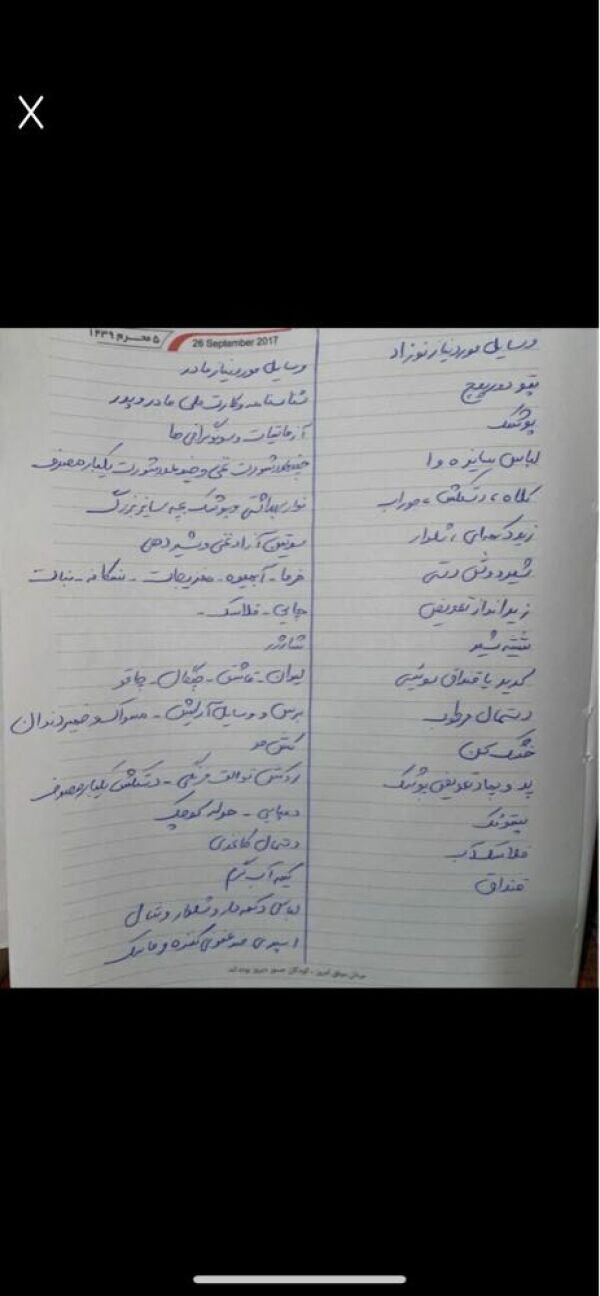 ۵ محرم ۱۴۳۹
26 September 2017
وسایل مورد نیاز نوزاد
پتو دورپیچ
پوشک
لباس سایز ۰ و ۱
کلاه، دستکش، جوراب
زیردکمه‌ای، شلوار
شیردوش دستی
زیرانداز تعویض
شیشه شیر
کریر یا قنداق سوئیسی
دستمال مرطوب
خشک کن
پد و پماد تعویض پوشک
پیتونک
فلاسک آب
قنداق
وسایل مورد نیاز مادر
شناسنامه و کارت ملی مادر و پدر
آزمایشات و سونوگرافی ها
چند عدد شورت نخی و چند عدد شورت یکبار مصرف
نوار بهداشتی و پوشک بچه سایز بزرگ
سوتین آزاد نخی و شیردهی
خرما - آبمیوه - مغزیجات - - نبات
چایی - فلاسک -
شارژر
لیوان - قاشق - چنگال - چاقو
برس و وسایل آرایش - مسواک و خمیر دندان
کش مو
روکش توالت فرنگی - دستکش یکبار مصرف
دمپایی - حوله کوچک
دستمال کاغذی
کیسه آب گرم
لباس دکمه دار و شلوار و شال
اسپری ضد عفونی کننده و ماسک